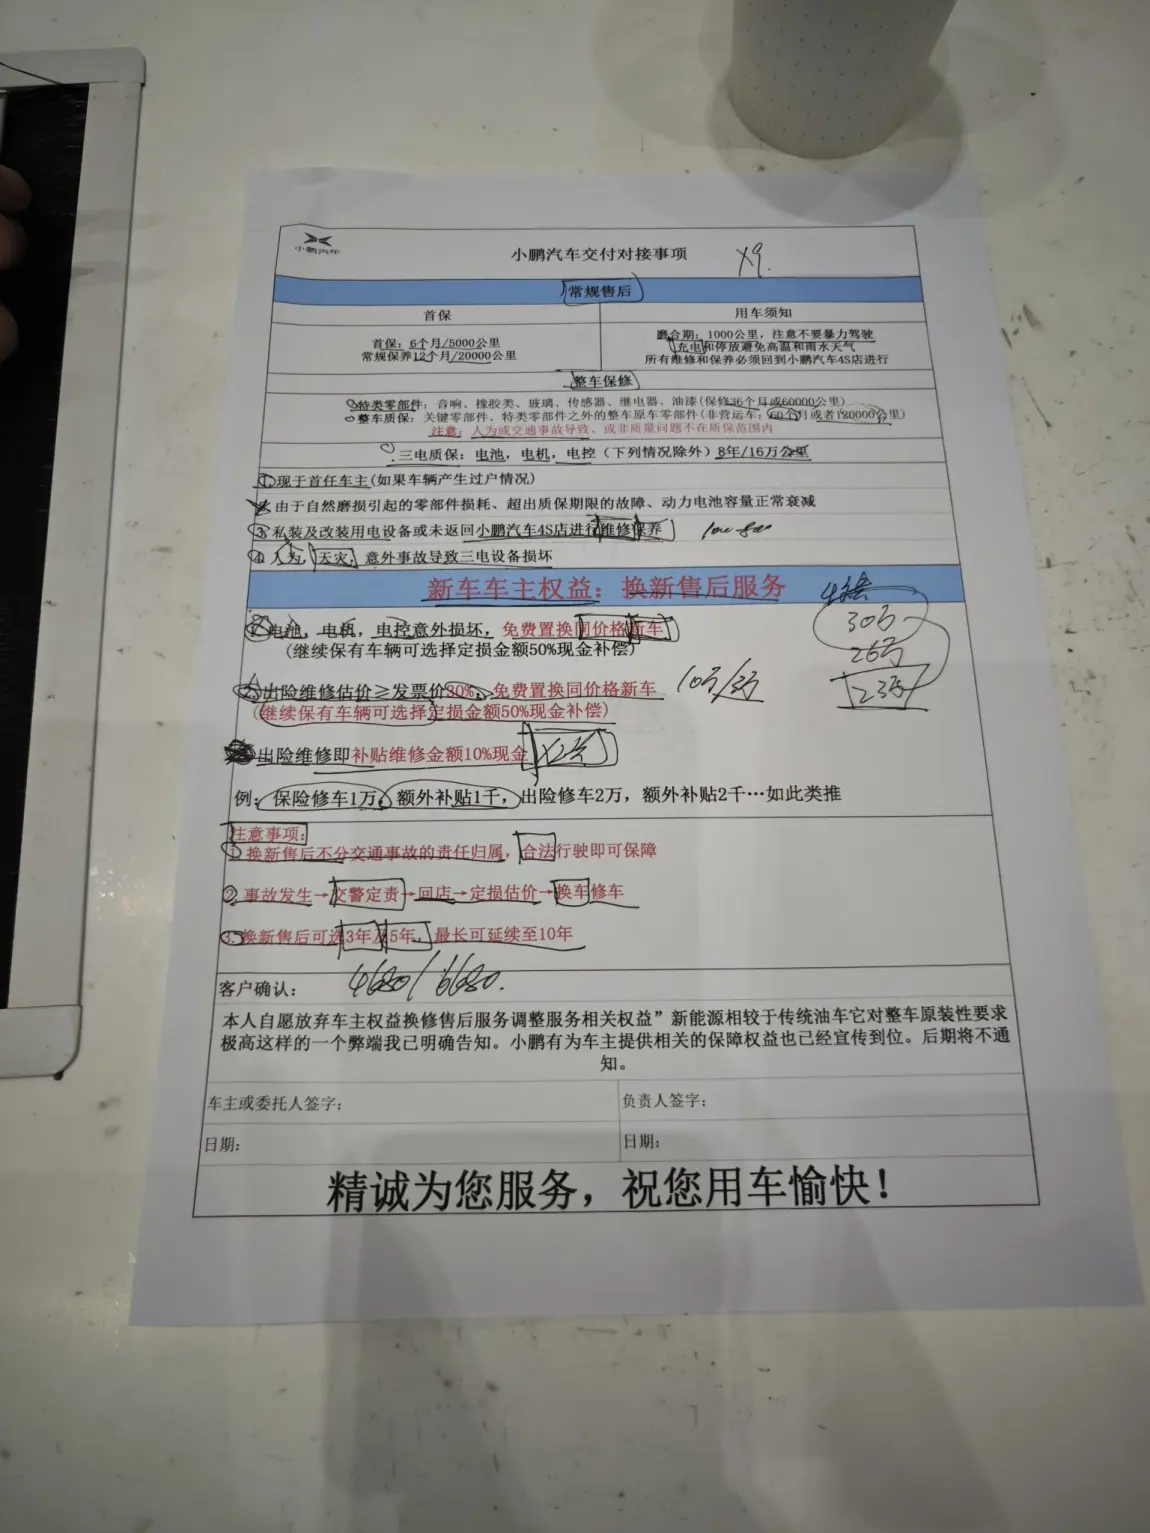 小鹏汽车
小鹏汽车交付对接事项
X9.
常规售后
首保
用车须知
首保：6个月/5000公里
常规保养12个月/20000公里
磨合期：1000公里，注意不要暴力驾驶
充电和停放避免高温和雨水天气
所有维修和保养必须回到小鹏汽车4S店进行
整车保修
特类零部件：音响、橡胶类、玻璃、传感器、继电器、油漆(保修36个月或60000公里)
整车质保：关键零部件、特类零部件之外的整车原车零部件(非营运车：60个月或者120000公里)
注意：人为或交通事故导致、或非质量问题不在质保范围内
三电质保：电池，电机，电控（下列情况除外）8年/16万公里
1.现于首任车主(如果车辆产生过户情况)
由于自然磨损引起的零部件损耗、超出质保期限的故障、动力电池容量正常衰减
3.私装及改装用电设备或未返回小鹏汽车4S店进行维修保养
4.人为，天灾，意外事故导致三电设备损坏
新车车主权益：换新售后服务
30万
26万
23万
1.电池，电机，电控意外损坏，免费置换同价格新车
(继续保有车辆可选择定损金额50%现金补偿)
2.出险维修估价≥发票价30%，免费置换同价格新车
(继续保有车辆可选择定损金额50%现金补偿)
10万/3万
出险维修即补贴维修金额10%现金
例：保险修车1万，额外补贴1千，出险修车2万，额外补贴2千…如此类推
注意事项：
1.换新售后不分交通事故的责任归属，合法行驶即可保障
2.事故发生→交警定责→回店→定损估价→换车修车
3.换新售后可选3年及5年，最长可延续至10年
客户确认：
4680/6680.
本人自愿放弃车主权益换修售后服务调整服务相关权益”新能源相较于传统油车它对整车原装性要求
极高这样的一个弊端我已明确告知。小鹏有为车主提供相关的保障权益也已经宣传到位。后期将不通
知。
车主或委托人签字：
负责人签字：
日期：
日期：
精诚为您服务，祝您用车愉快！